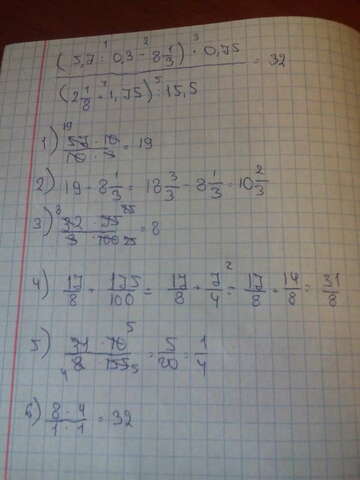 (5,7 : 0,3 - 8 1/3) · 0,75
(2 1/8 + 1,75) : 15,5 = 32
1) 57 · 10 / 10 · 3 = 19
2) 19 - 8 1/3 = 18 3/3 - 8 1/3 = 10 2/3
3) 32 · 75 / 3 · 100 = 8
4) 17/8 + 175/100 = 17/8 + 7/4 = 17/8 + 14/8 = 31/8
5) 31 · 10 / 8 · 155 = 5/20 = 1/4
6) 8 · 4 / 1 · 1 = 32